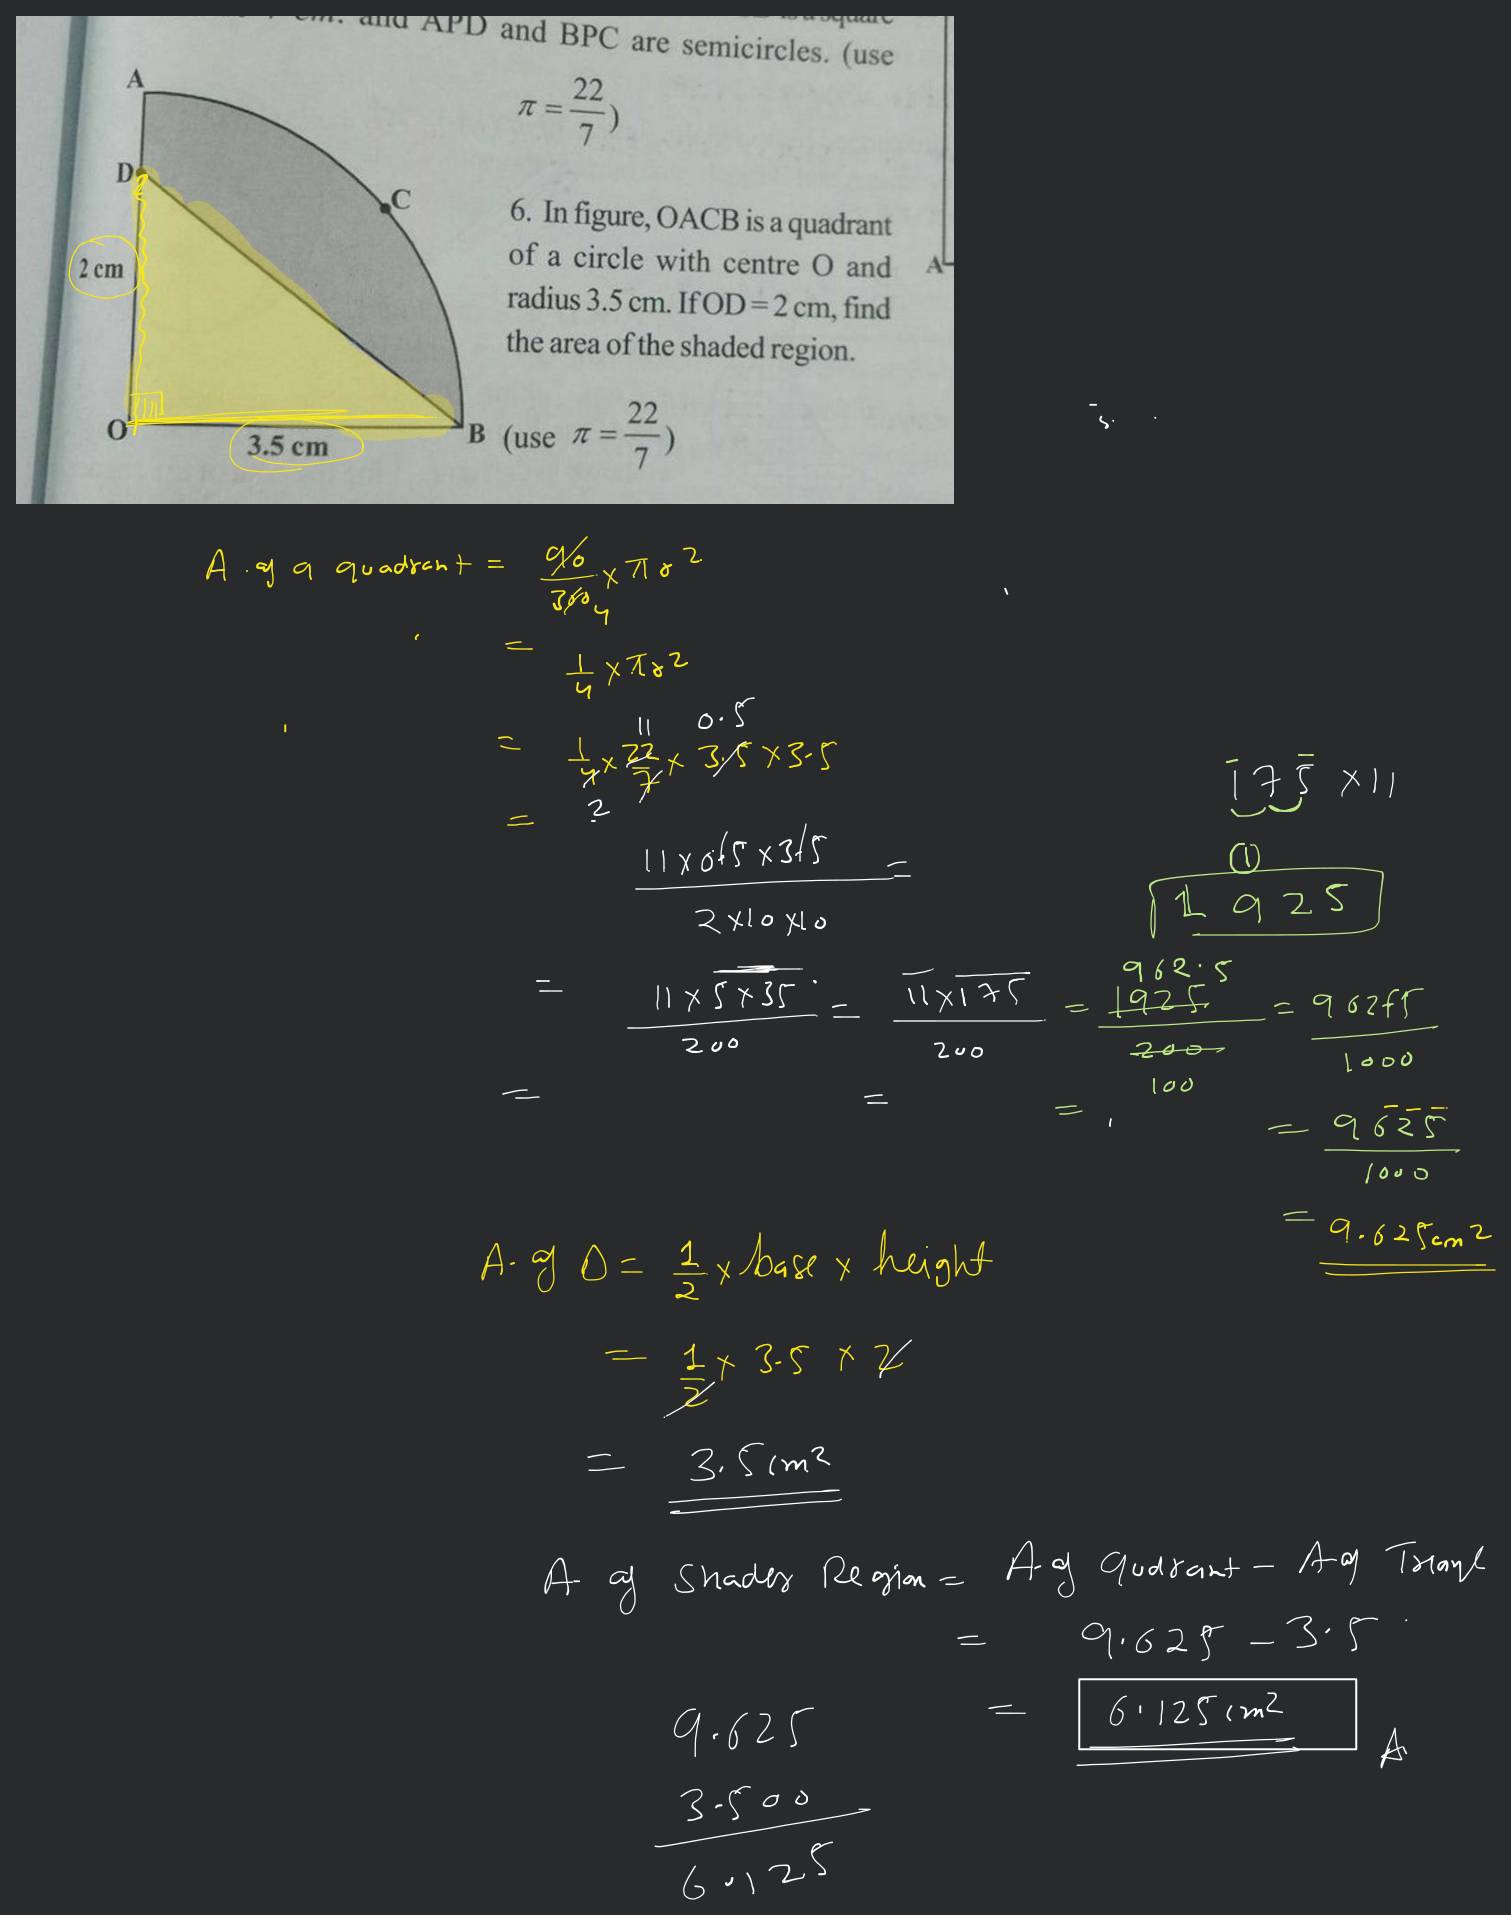 cm. and APD and BPC are semicircles. (use
π = 22/7)
A
D
C
2 cm
O
3.5 cm
B
6. In figure, OACB is a quadrant
of a circle with centre O and
radius 3.5 cm. If OD = 2 cm, find
the area of the shaded region.
(use π = 22/7)
A
A. of a quadrant = 90/360 4 × πr²
= 1/4 × πr²
11 0.5
= 1/4 × 22/7 × 3.5 × 3.5
= 2
11 × 0.5 × 3.5 / 2×10×10 =
= 11 × 5 × 35 / 200 = 11×175 / 200 = 1925 / 200 = 962.5 / 1000
962.5
100
= = =
175 × 11
1
1925
= 9625 / 1000
= 9.625cm²
A. of Δ = 1/2 × base × height
= 1/2 × 3.5 × 2
= 3.5cm²
A of Shader Region = A of Qudrant - A of
= 9.625 - 3.5
= 6.125cm²
A
9.625
3.500
6.125